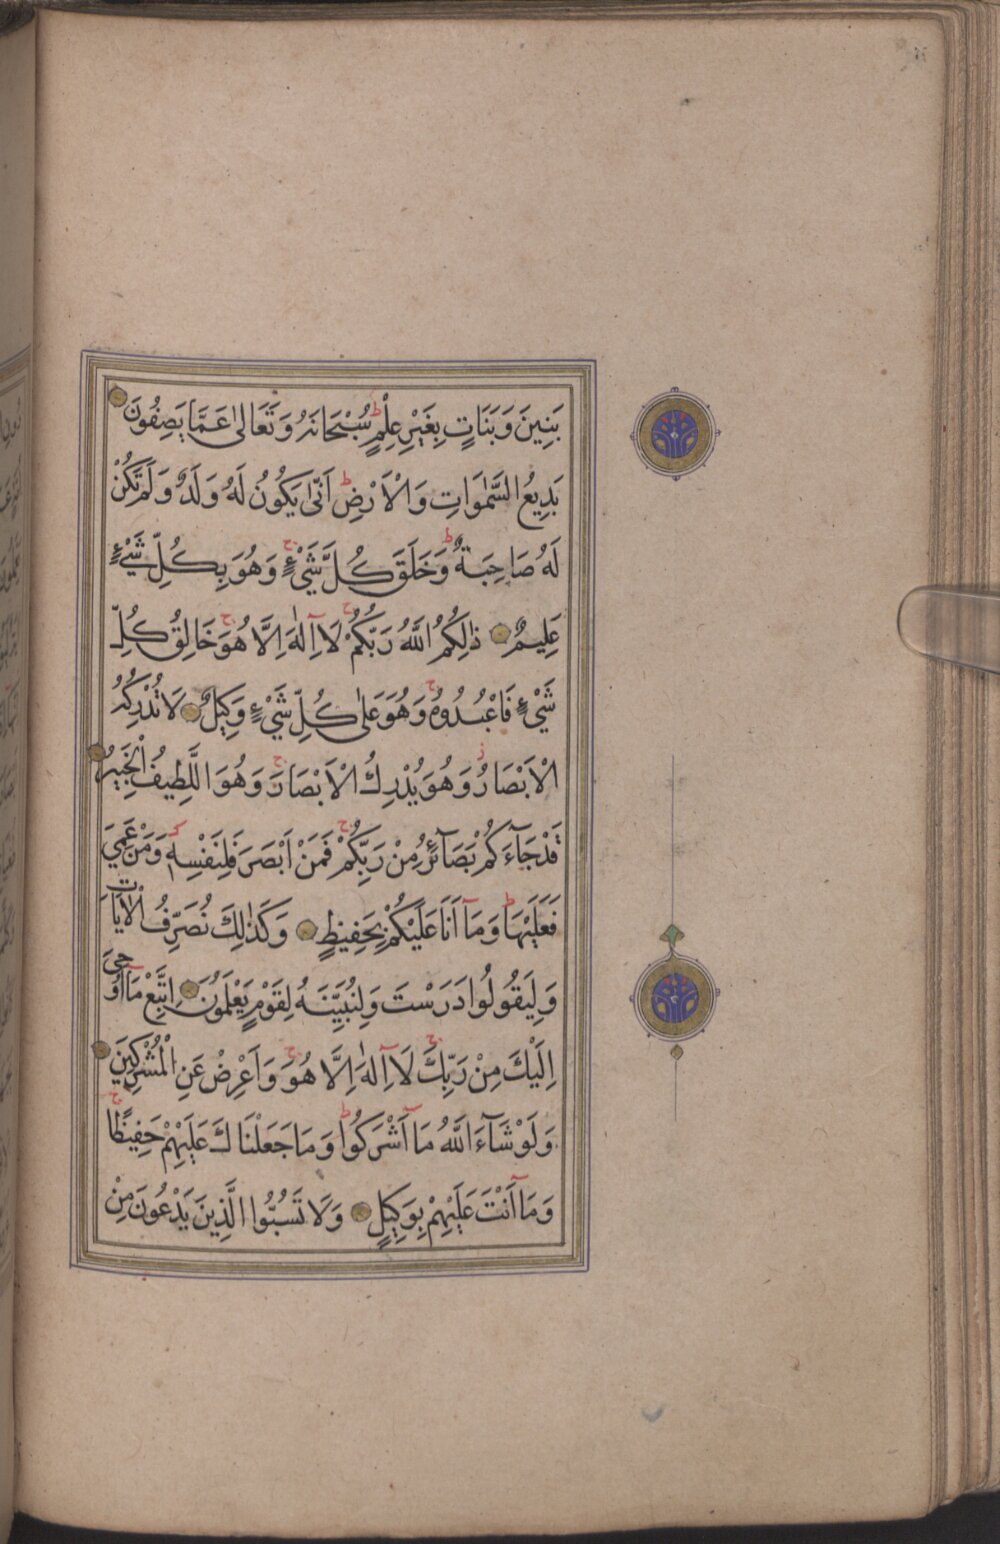 بَنِينَ وَبَنَاتٍ بِغَيْرِ عِلْمٍ ط سُبْحَانَهُ وَتَعَالٰى عَمَّا يَصِفُونَ
بَدِيعُ السَّمٰوَاتِ وَالْاَرْضِ ط اَنّٰى يَكُونُ لَهُ وَلَدٌ وَلَمْ تَكُنْ
لَهُ صَاحِبَةٌ ط وَخَلَقَ كُلَّ شَيْءٍ ج وَهُوَ بِكُلِّ شَيْءٍ
عَلِيمٌ ذٰلِكُمُ اللّٰهُ رَبُّكُمْ ج لَا اِلٰهَ اِلَّا هُوَ ج خَالِقُ كُلِّ
شَيْءٍ فَاعْبُدُوهُ ج وَهُوَ عَلٰى كُلِّ شَيْءٍ وَكِيلٌ لَا تُدْرِكُهُ
الْاَبْصَارُ ز وَهُوَ يُدْرِكُ الْاَبْصَارَ ج وَهُوَ اللَّطِيفُ الْخَبِيرُ
قَدْ جَآءَكُمْ بَصَآئِرُ مِنْ رَبِّكُمْ ج فَمَنْ اَبْصَرَ فَلِنَفْسِهِ وَمَنْ عَمِيَ
فَعَلَيْهَا ط وَمَآ اَنَا عَلَيْكُمْ بِحَفِيظٍ وَكَذٰلِكَ نُصَرِّفُ الْاٰيَاتِ
وَلِيَقُولُوا دَرَسْتَ وَلِنُبَيِّنَهُ لِقَوْمٍ يَعْلَمُونَ اِتَّبِعْ مَآ اُوحِيَ
اِلَيْكَ مِنْ رَبِّكَ ج لَآ اِلٰهَ اِلَّا هُوَ ج وَاَعْرِضْ عَنِ الْمُشْرِكِينَ
وَلَوْ شَآءَ اللّٰهُ مَآ اَشْرَكُوا ط وَمَا جَعَلْنَاكَ عَلَيْهِمْ حَفِيظًا ج
وَمَآ اَنْتَ عَلَيْهِمْ بِوَكِيلٍ وَلَا تَسُبُّوا الَّذِينَ يَدْعُونَ مِنْ